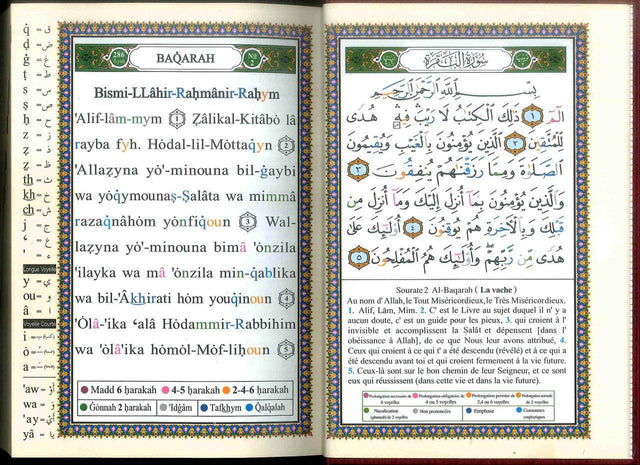 286
Ayat
BAQARAH
N° 2
Bismi-LLâhir-Raḥmânir-Raḥym
'Alif-lâm-mym 1 Ẓâlikal-Kitâbô lâ
rayba fyh. Hódal-lil-Móttaqyn 2
'Allaẓyna yó'-minouna bil-ġaybi
wa yóqymounaṣ-Ṣalâta wa mimmâ
razaqnâhóm yónfiqoun 3 Wal-
laẓyna yó'-minouna bimâ 'ónzila
'ilayka wa mâ 'ónzila min-qablika
wa bil-'Âkhirati hóm youqinoun 4
'Ólâ-'ika ʿalâ Hódammir-Rabbihim
wa 'ólâ'ika hómól-Móf-liḥoun 5
Madd 6 ḥarakah
4-5 ḥarakah
2-4-6 ḥarakah
Ġönnah 2 ḥarakah
'Idġâm
Tafkhym
Qalqalah
q̇ = ق
ḍ = ض
ġ = غ
ṭ = ط
ṣ = ص
ẓ =
ḥ = ح
th = ث
kh = خ
sh = ش
j = ج
r = ر
ʿ = ع
Longue Voyelle
y = ي
ou = و
â = ا
Voyelle Courte
i =
ó =
a =
'aw = أو
wa = و
'ay = أي
yâ = يا
سورة البقرة
بِسْمِ اللَّهِ الرَّحْمَٰنِ الرَّحِيمِ
الٓمٓ ١ ذَٰلِكَ الْكِتَابُ لَا رَيْبَ فِيهِ هُدًى
لِّلْمُتَّقِينَ ٢ الَّذِينَ يُؤْمِنُونَ بِالْغَيْبِ وَيُقِيمُونَ
الصَّلَاةَ وَمِمَّا رَزَقْنَاهُمْ يُنفِقُونَ ٣
وَالَّذِينَ يُؤْمِنُونَ بِمَا أُنزِلَ إِلَيْكَ وَمَا أُنزِلَ مِن
قَبْلِكَ وَبِالْآخِرَةِ هُمْ يُوقِنُونَ ٤ أُولَٰئِكَ عَلَىٰ
هُدًى مِّن رَّبِّهِمْ وَأُولَٰئِكَ هُمُ الْمُفْلِحُونَ ٥
Sourate 2 Al-Baqarah ( La vache )
Au nom d'Allah, le Tout Miséricordieux, le Très Miséricordieux.
1. Alif, Lâm, Mim. 2. C' est le Livre au sujet duquel il n' y a
aucun doute, c' est un guide pour les pieux, 3. qui croient à l'
invisible et accomplissent la Ṣalât et dépensent [dans l'
obéissance à Allah], de ce que Nous leur avons attribué, 4.
Ceux qui croient à ce qui t' a été descendu (révélé) et à ce qui a
été descendu avant toi et qui croient fermement à la vie future.
5. Ceux-là sont sur le bon chemin de leur Seigneur, et ce sont
eux qui réussissent (dans cette vie et dans la vie future).
Prolongation nécessaire de 6 voyelles
Prolongation obligatoire de 4 ou 5 voyelles
Prolongation permise de 2,4 ou 6 voyelles
Prolongation normale de 2 voyelles
Nasalisation (ghunnah) de 2 voyelles
Non prononcées
Emphase
Consonnes emphatiques